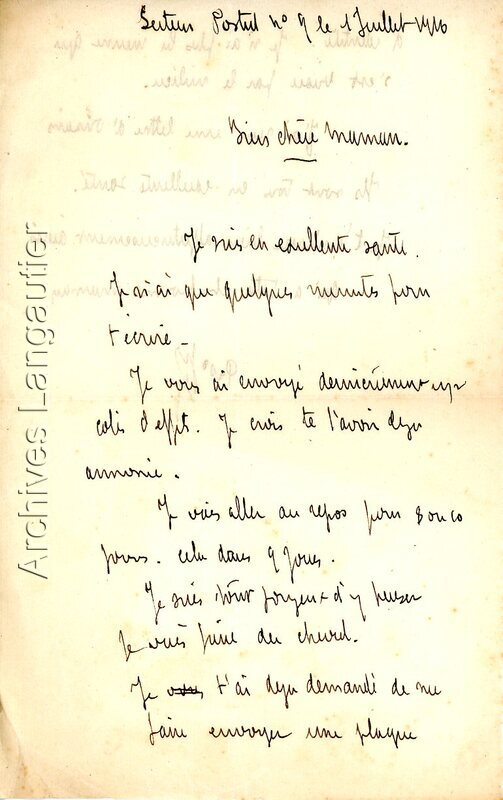 Secteur Postal n° 9 le 1 Juillet 1916
Bien chère Maman.
Je suis en excellente santé.
Je n'ai que quelques minutes pour
t'écrire -
Je vous ai envoyé dernièrement un
colis d'effets. Je crois te l'avoir deja
annoncé.
Je vais aller au repos pour 8 ou 10
jours. cela dans 9 jours.
Je suis tout joyeux d'y penser
Je vais faire du cheval.
Je t'ai deja demandé de me
faire envoyer une plaque
Archives Langautier